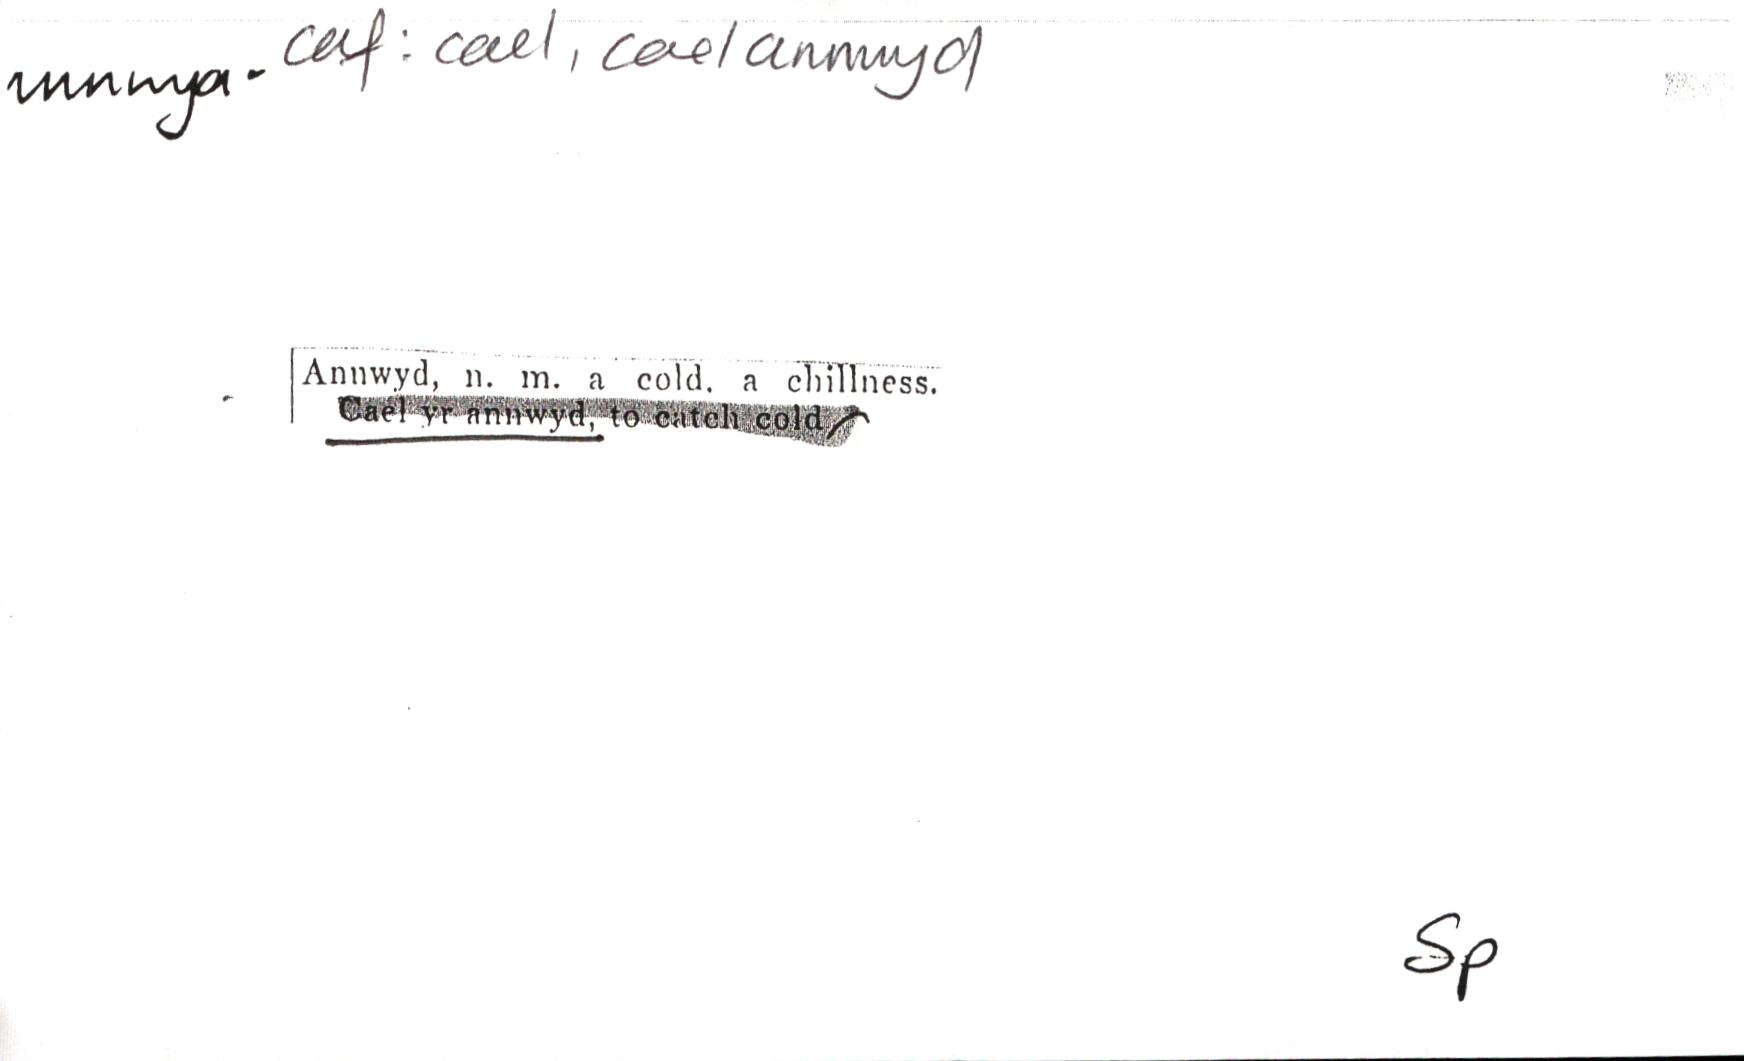 annwyd - caf: cael, cael annwyd
Annwyd, n. m. a cold. a chillness.
Cael yr annwyd, to catch cold
Sp